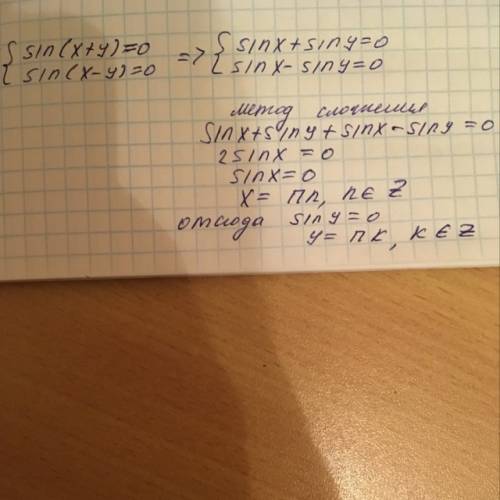 { sin(x+y)=0 => { sinx+siny=0
{ sin(x-y)=0 { sinx-siny=0
метод сложения
sinx+siny+sinx-siny=0
2sinx=0
sinx=0
x=пn, n∈Z
отсюда siny=0
y=пk, k∈Z